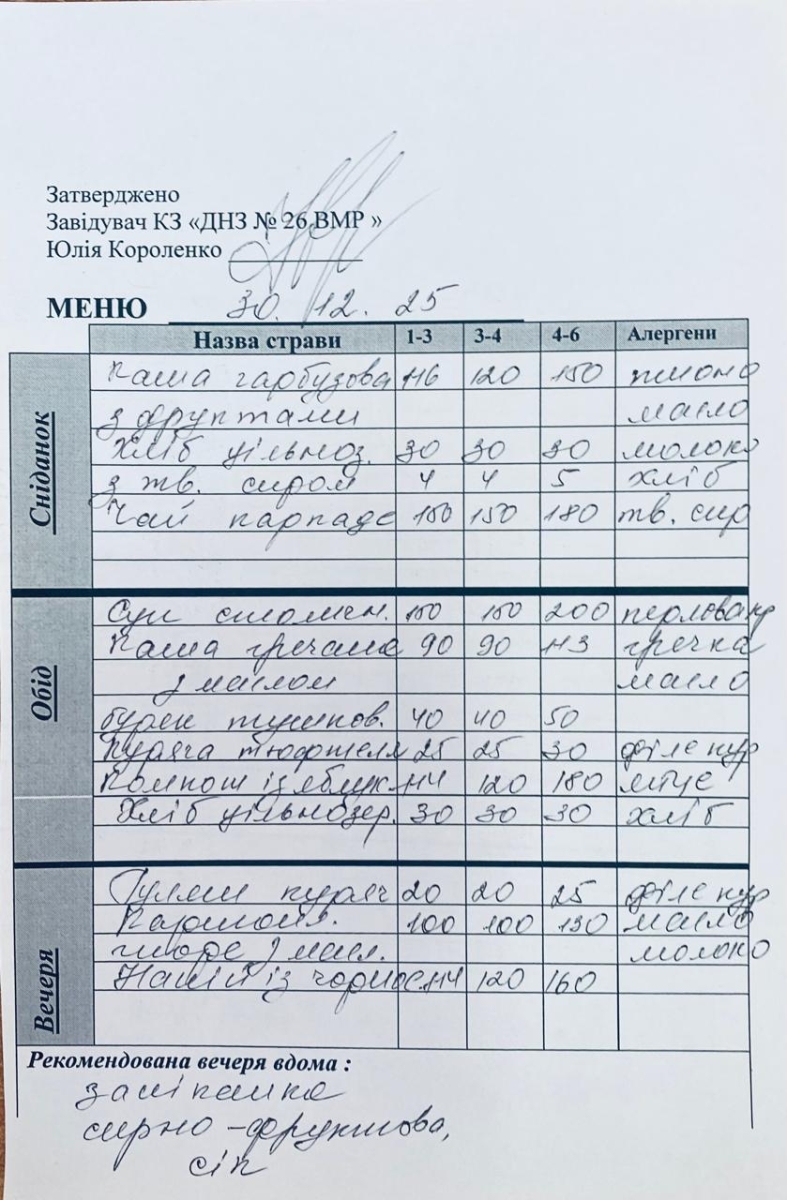 Затверджено
Завідувач КЗ «ДНЗ № 26 ВМР »
Юлія Короленко
МЕНЮ 30. 12. 25
Назва страви 1-3 3-4 4-6 Алергени
Сніданок
Каша гарбузова 116 120 150 пшоно
з фруктами масло
Хліб цільноз. 30 30 30 молоко
з тв. сиром 4 4 5 хліб
Чай каркаде 150 150 180 тв. сир
Обід
Суп 150 150 200 перловка
Каша гречана 90 90 113 гречка
з маслом масло
буряк тушков. 40 40 50
Куряча тюфтеля 25 25 30 філе кур
Компот із яблук 114 120 180
Хліб цільнозер. 30 30 30 хліб
Вечеря
Гуляш куряч 20 20 25 філе кур
Картопл. 100 100 130 масло
пюре з масл. молоко
Напій із чорносл. 114 120 160
Рекомендована вечеря вдома :
запіканка
сирно-фруктова,
сік